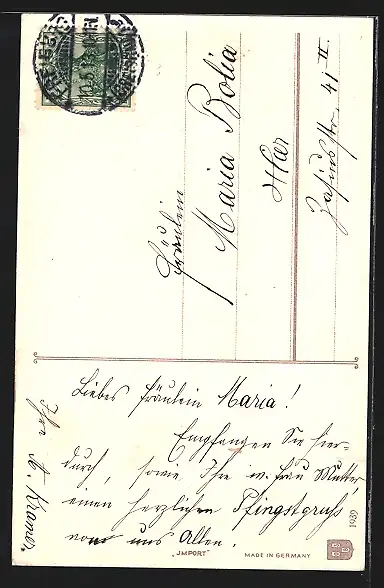 10.5.
Fräulein
Maria Bolia
Hier
Zasiusstr. 41 II.
Liebes Fräulein Maria!
Empfangen Sie hier-
durch, sowie Ihre w. Frau Mutter,
einen herzlichen Pfingstgruss
von uns Allen.
Ihr A. Kramer.
1939
"JMPORT"
MADE IN GERMANY